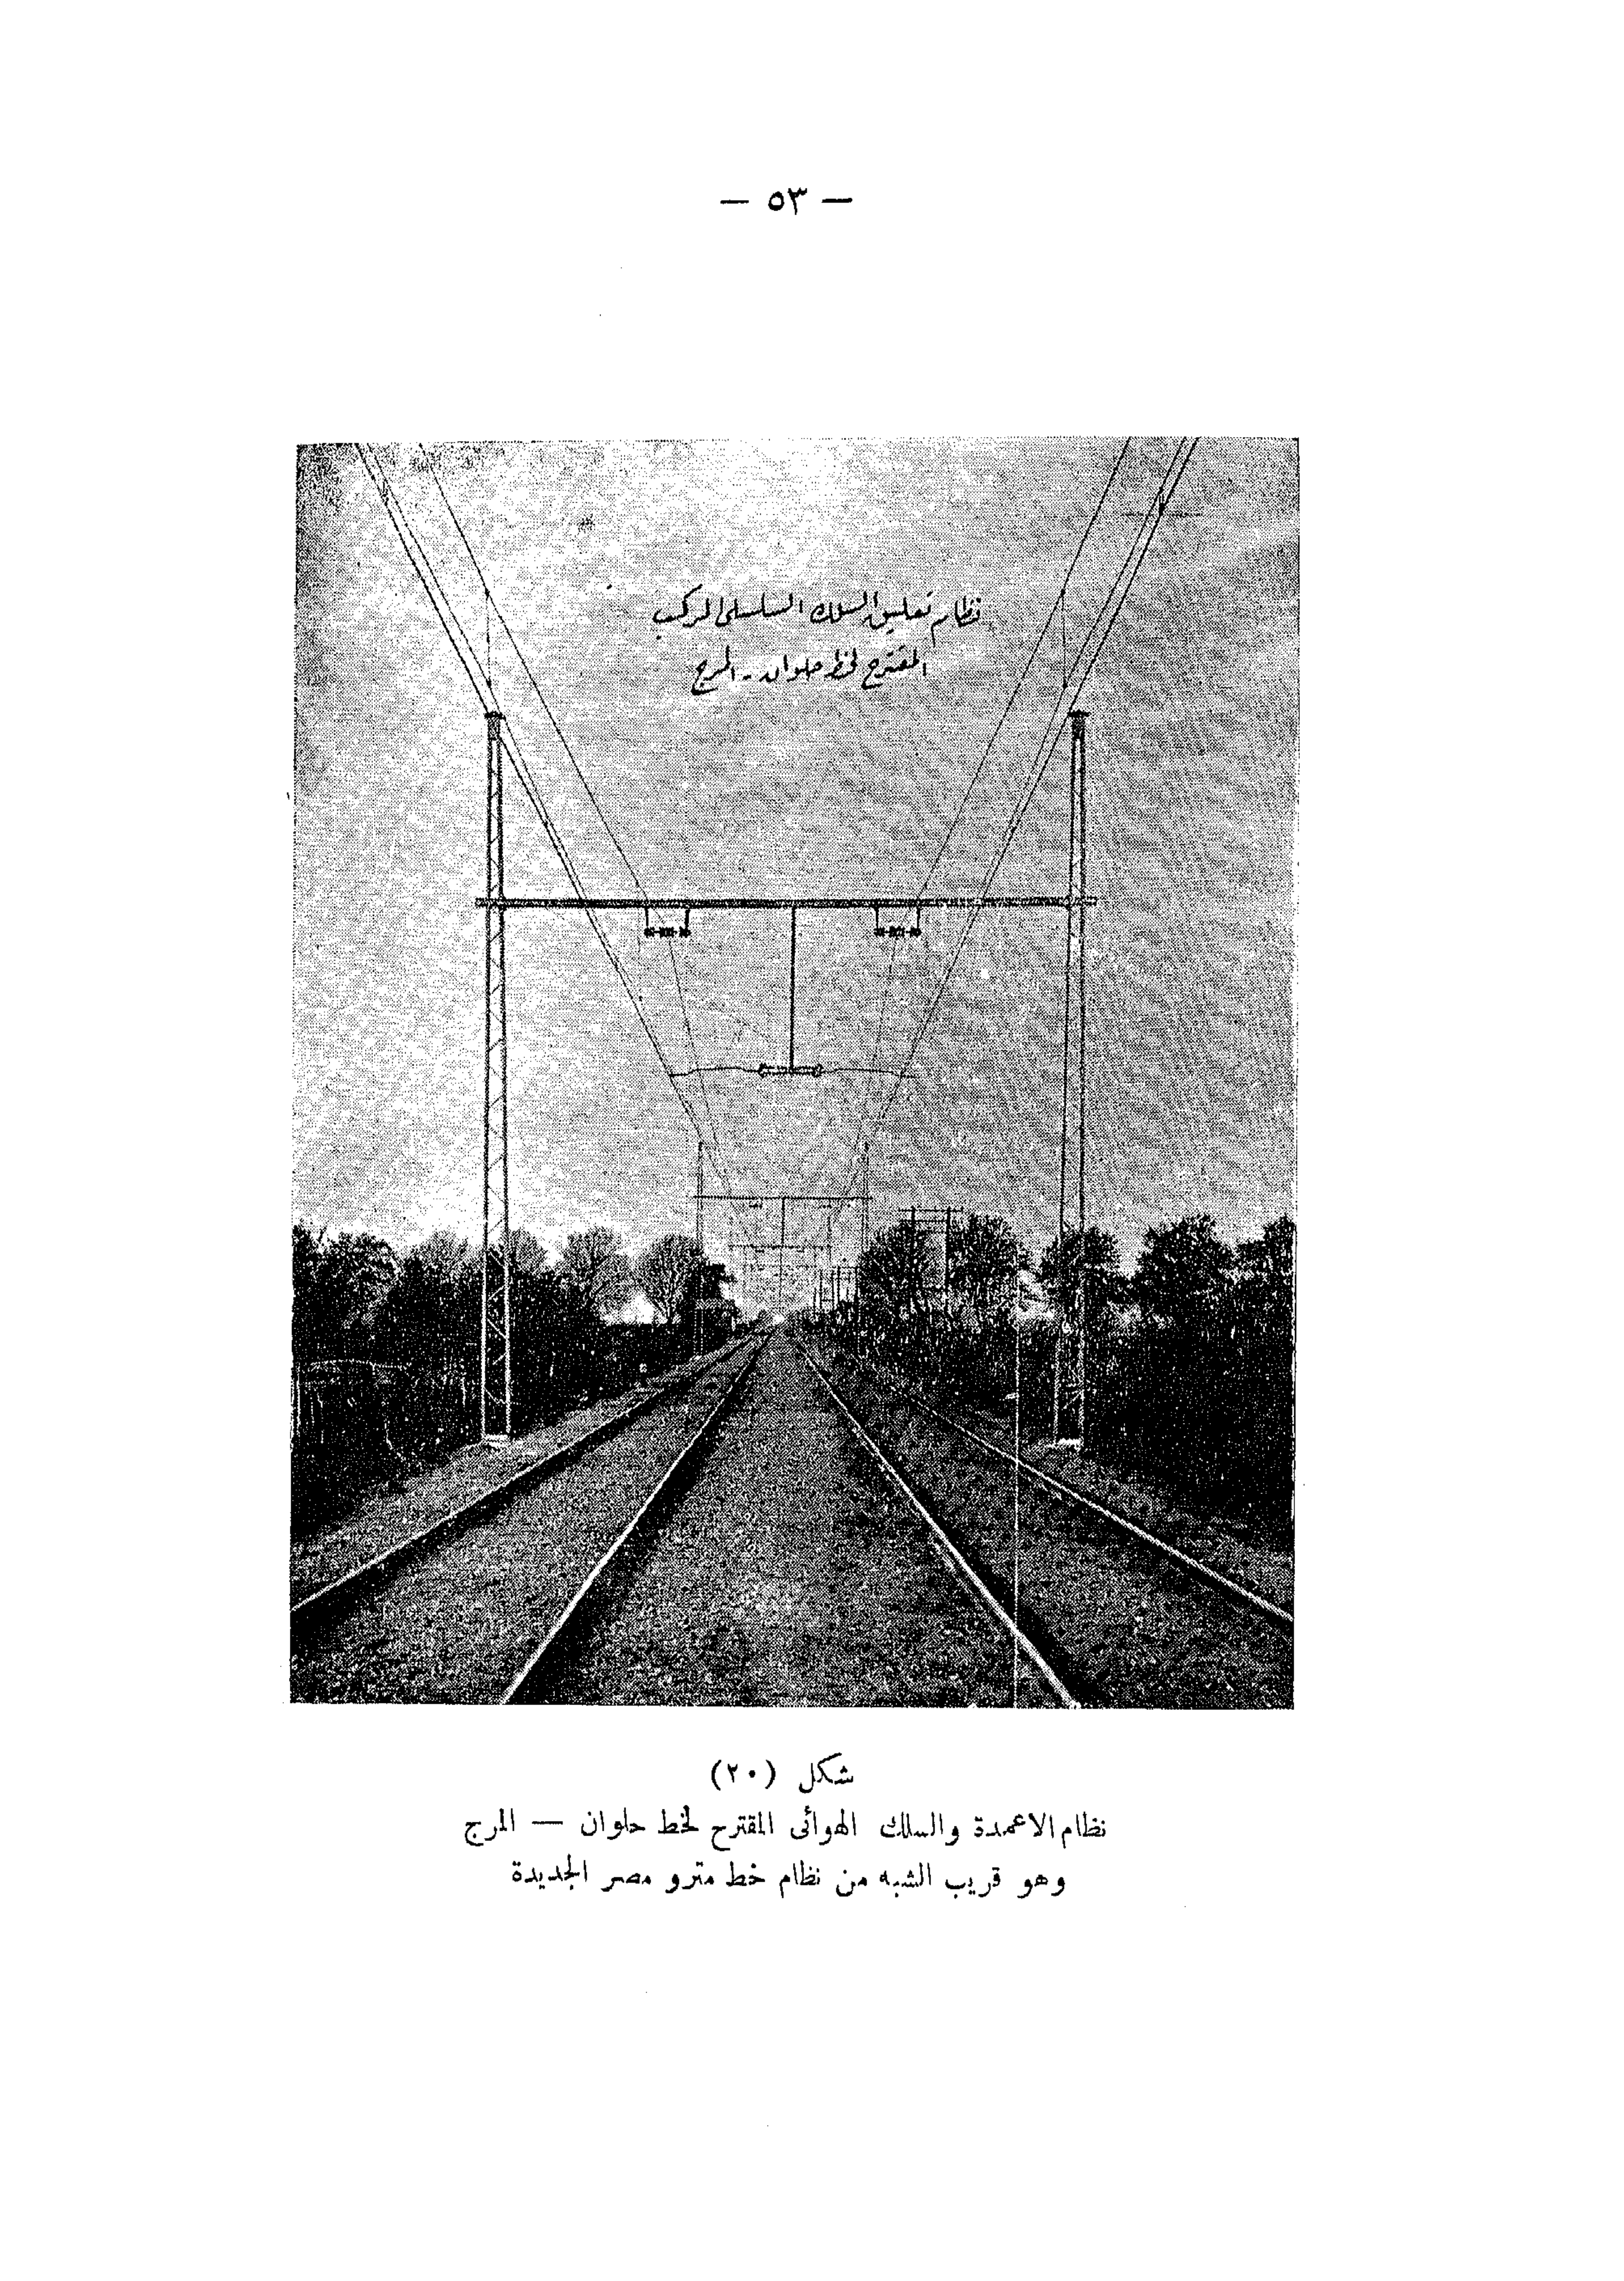 — ٥٣ —
نظام تعليق السلك السلسلى المركب
المقترح لخط حلوان - المرج
شكل (٢٠)
نظام الاعمدة والسلك الهوائى المقترح لخط حلوان — المرج
وهو قريب الشبه من نظام خط مترو مصر الجديدة